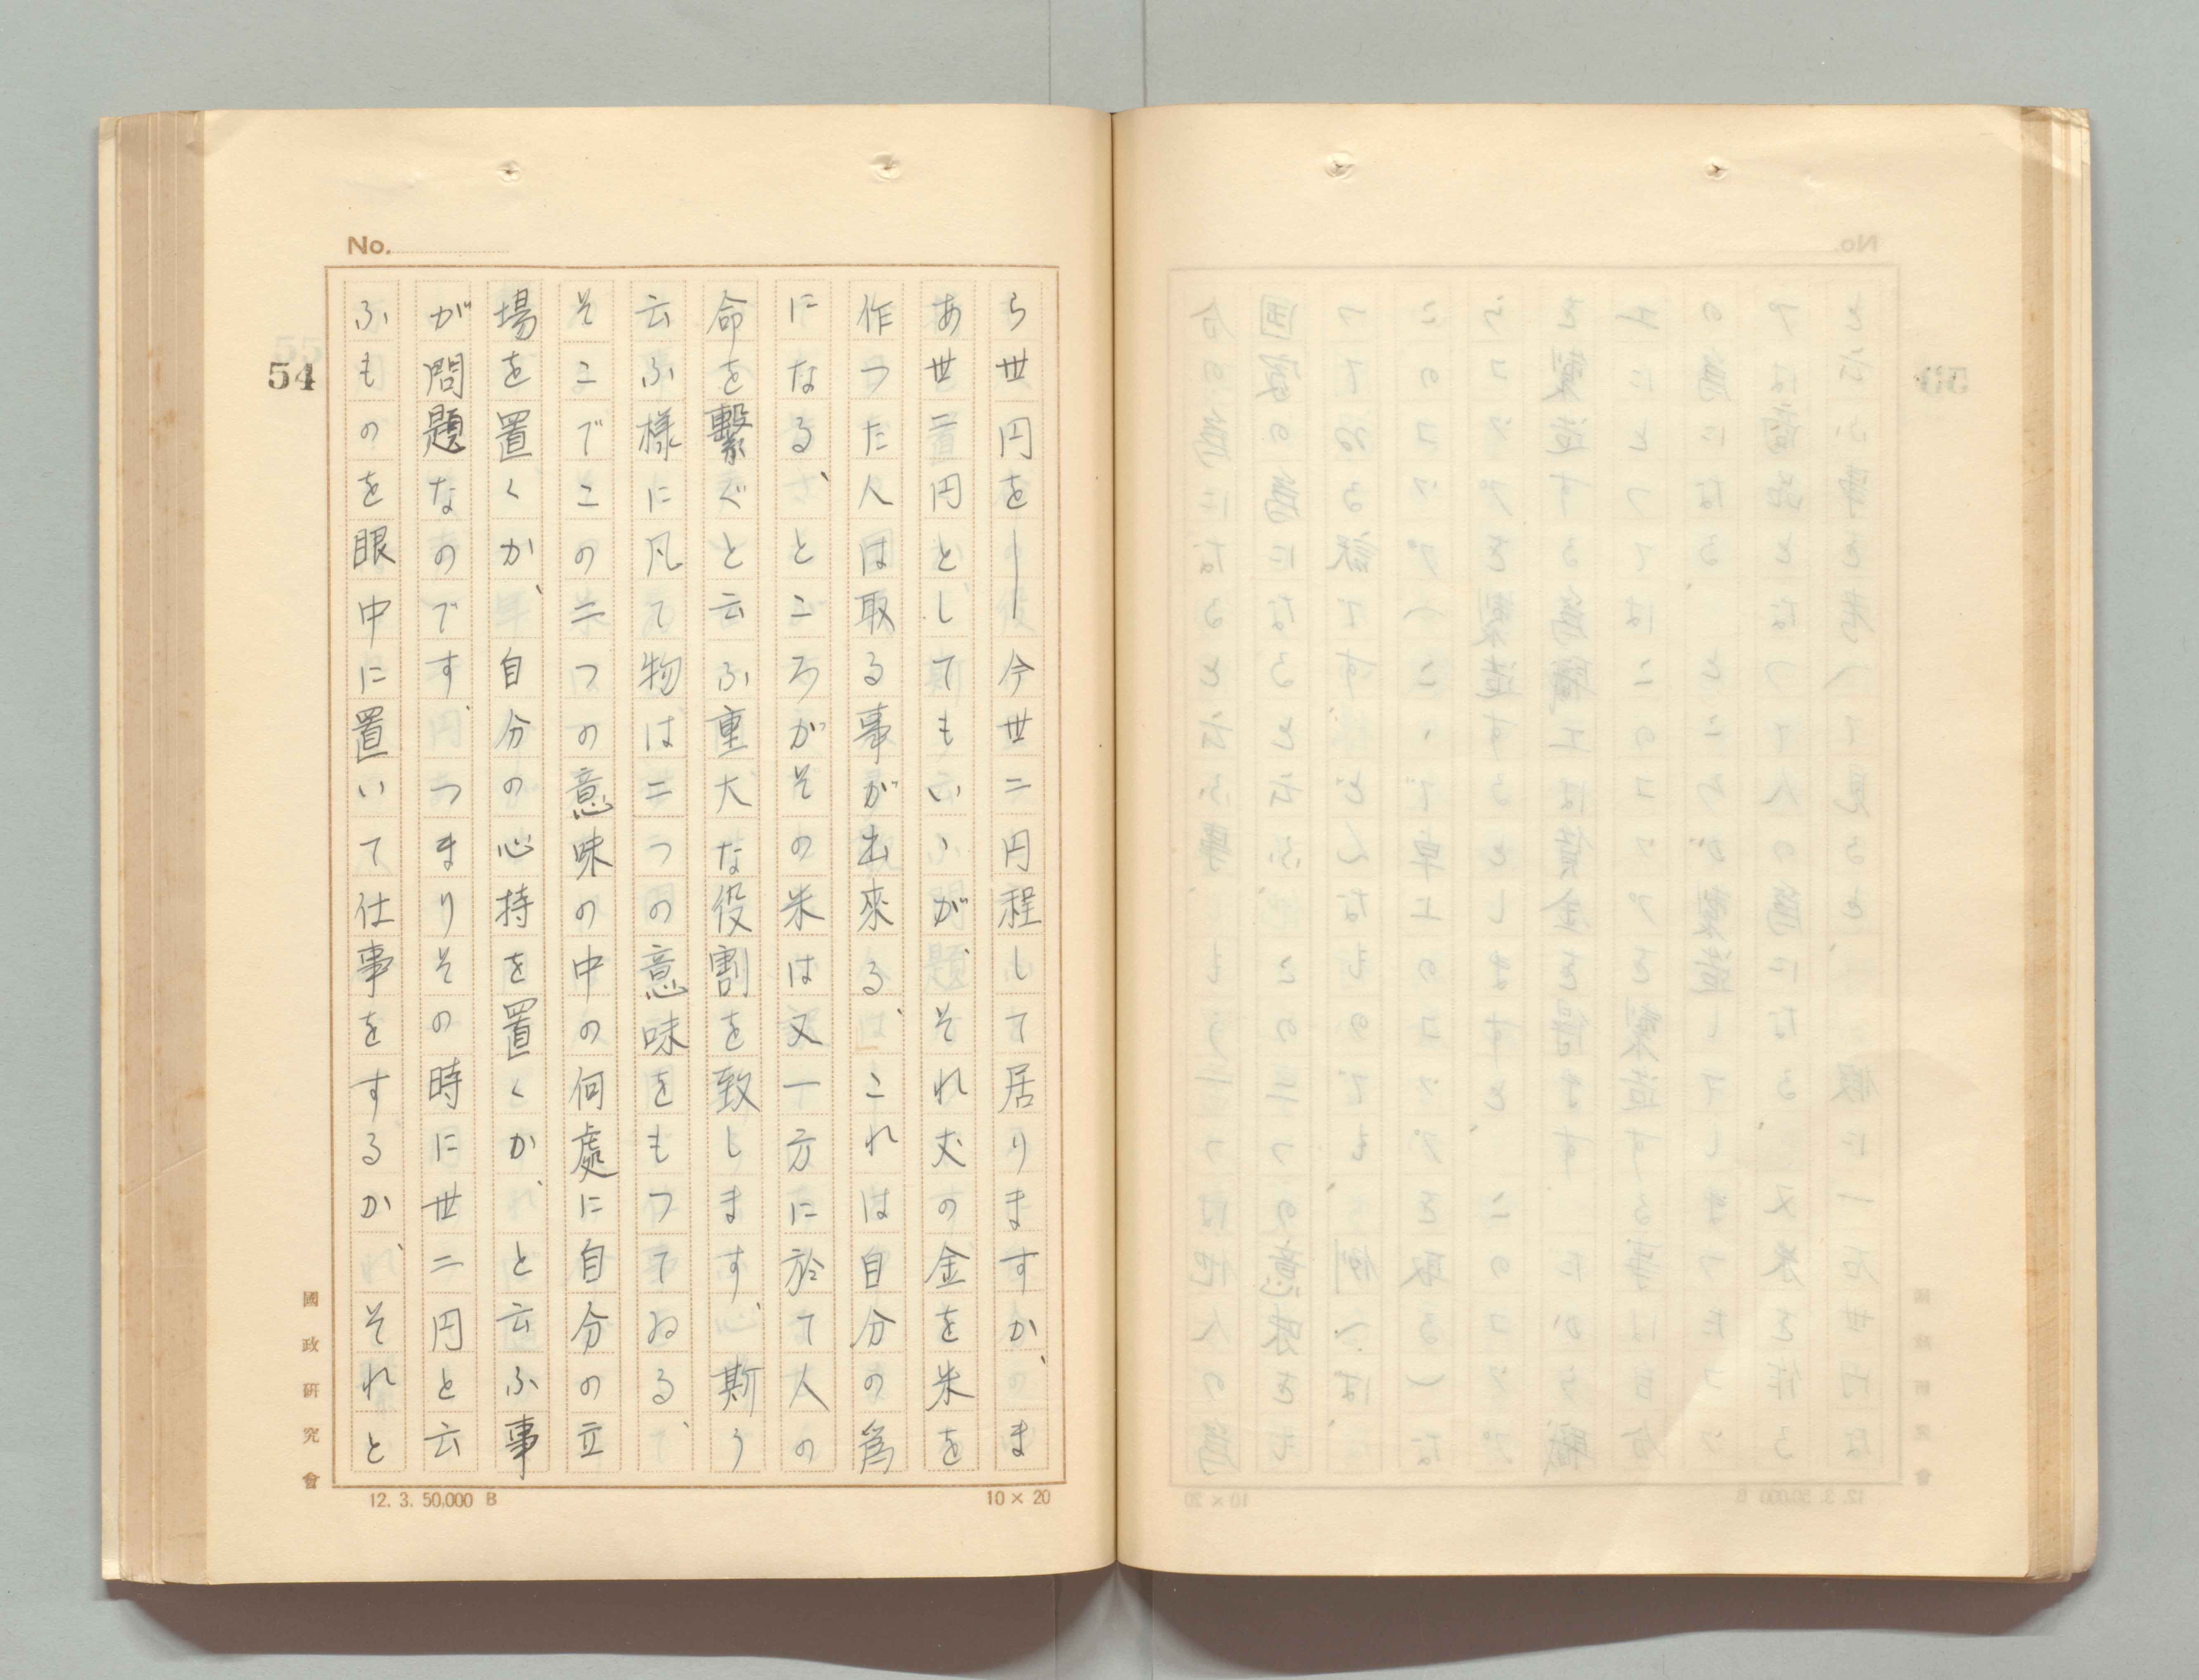 No.
54
ら世円を——今世二円程して居りますが、ま
あ世二円としてもいゝが、それ丈の金を米を
作つた人は取る事が出來る、これは自分の爲
になる、ところがその米は又一方に於て人の
命を繋ぐと云ふ重大な役割を致します、斯う
云ふ様に凡て物は二つの意味をもつてゐる、
そこでこの二つの意味の中の何處に自分の立
場を置くか、自分の心持を置くか、と云ふ事
が問題なのです、つまりその時に世二円と云
ふものを眼中に置いて仕事をするか、それと
國政研究會
12. 3. 50,000 B
10×20